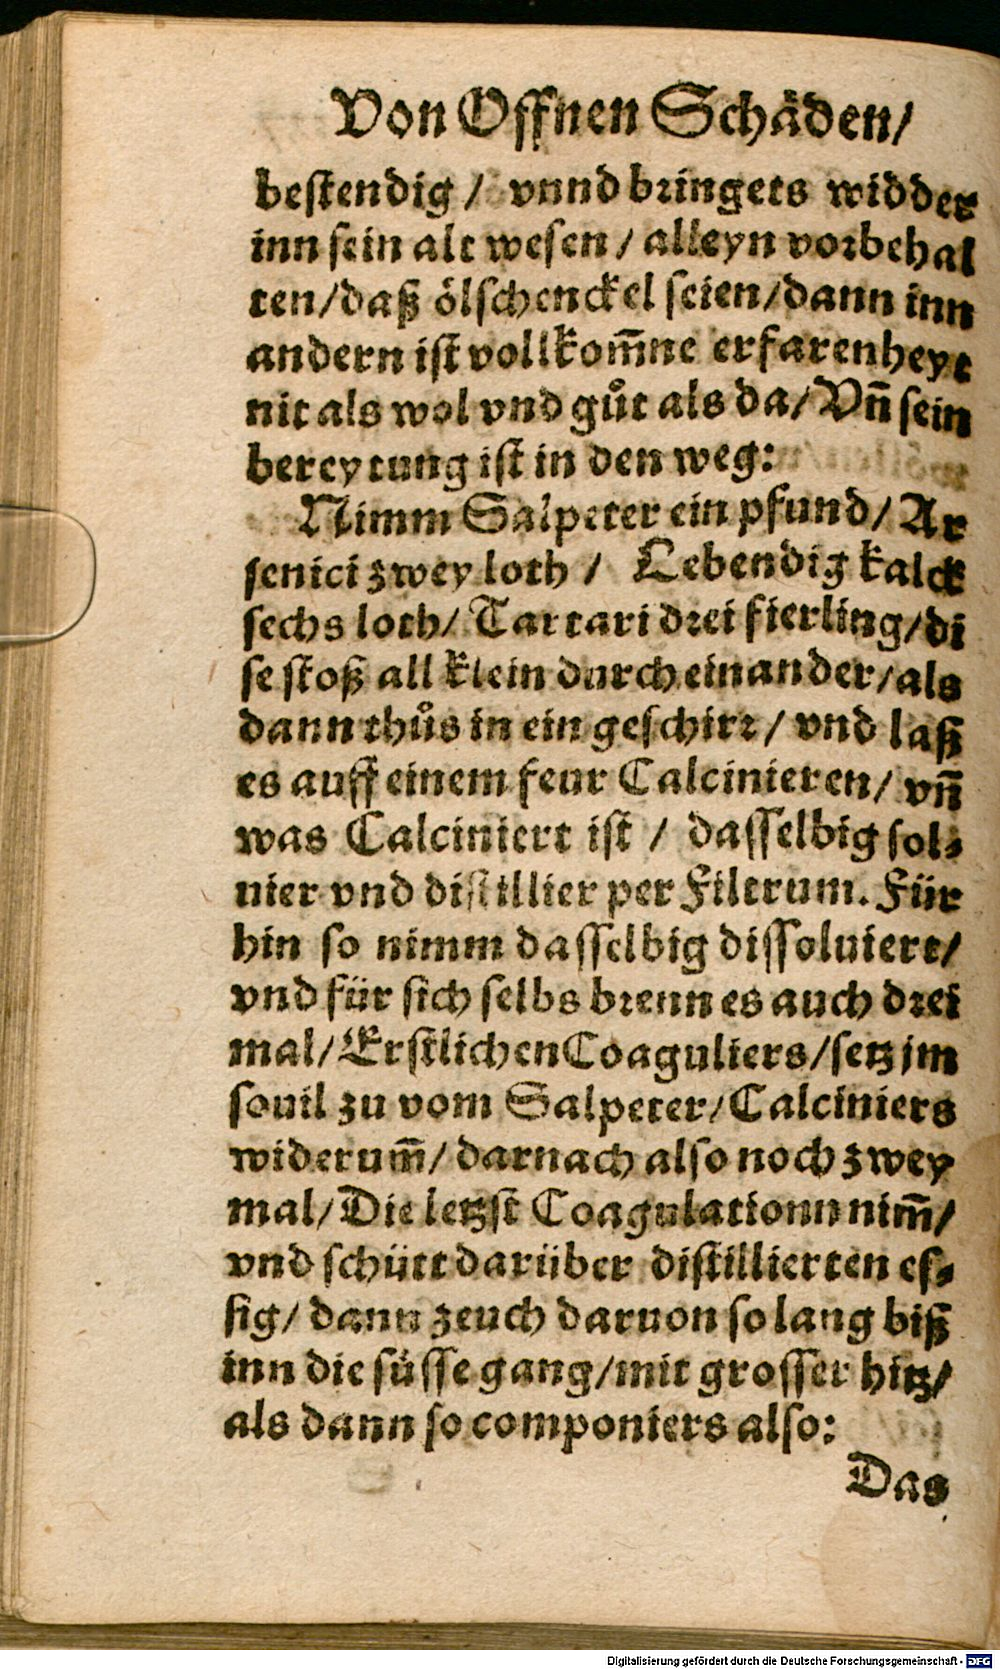 Von Offnen Schäden/
bestendig / vnnd bringets widder
inn sein alt wesen / alleyn vorbehal
ten/daß ölschenckel seien/dann inn
andern ist vollkom̃ne erfarenheyt
nit als wol vnd gůt als da/ Vñ sein
bereytung ist in den weg:
Nimm Salpeter ein pfund/ Ar
senici zwey loth / Lebendig kalck
sechs loth/ Tartari drei fierling/di
se stoß all klein durch einander/als
dann thůs in ein geschirr / vnd laß
es auff einem feur Calcinieren/ vñ
was Calciniert ist / dasselbig sol⸗
nier vnd distillier per Filtrum. Für
hin so nimm dasselbig dissoluiert/
vnd für sich selbs brenn es auch drei
mal/Erstlichen Coaguliers/setz jm
souil zu vom Salpeter/Calciniers
widerum̃/ darnach also noch zwey
mal/Die letzst Coagulationn nim̃/
vnd schütt darüber distillierten es⸗
sig/ dann zeuch daruon so lang biß
inn die süsse gang/mit grosser hitz/
als dann so componiers also:
Das
Digitalisierung gefördert durch die Deutsche Forschungsgemeinschaft - DFG